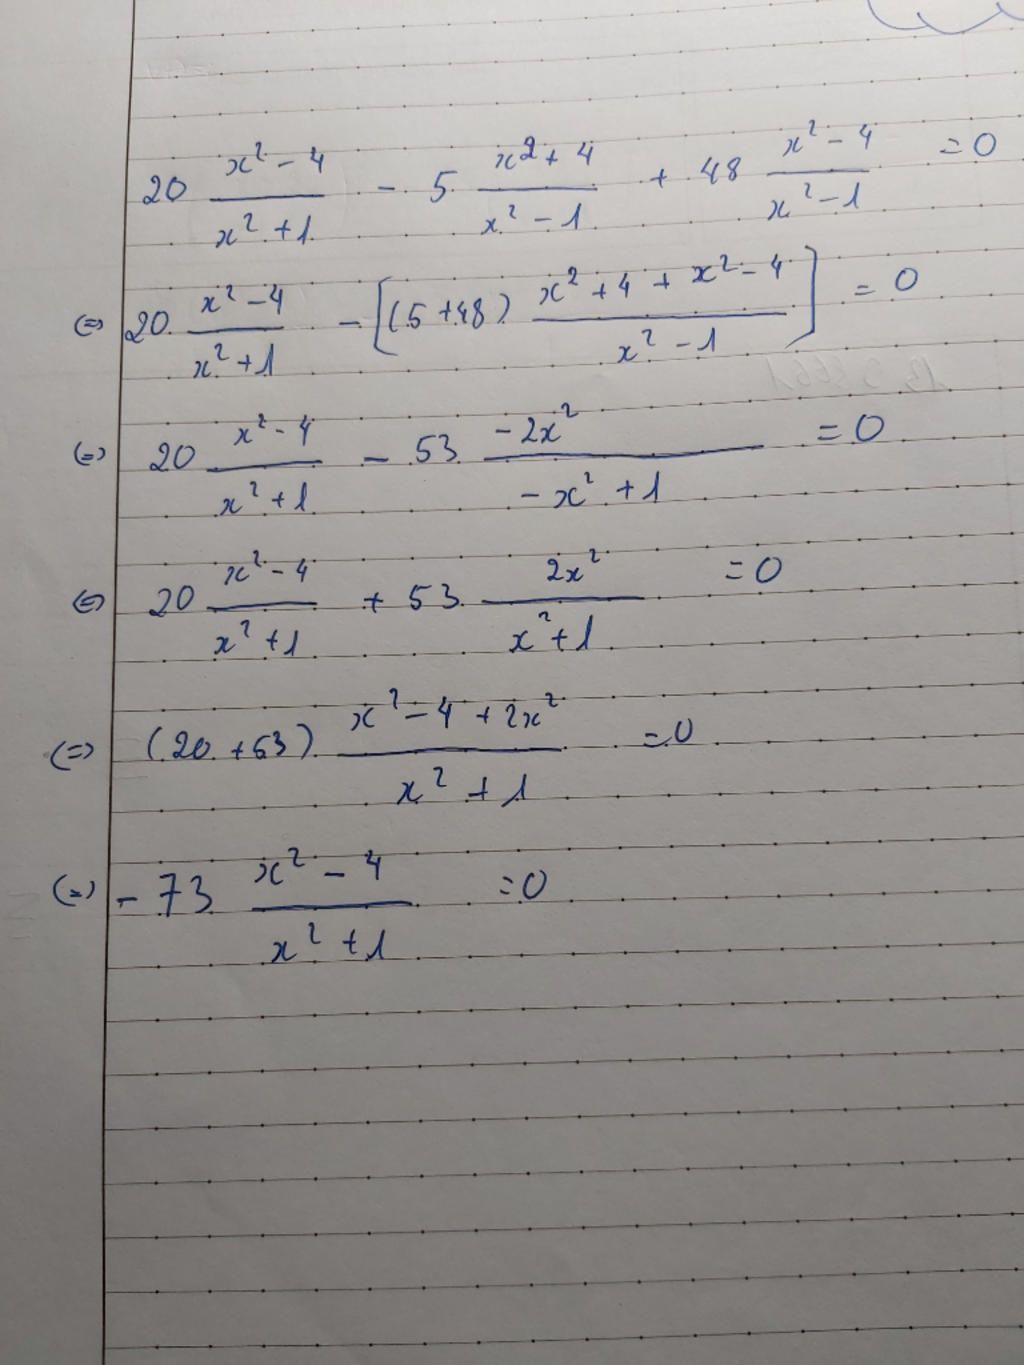 20 (x² - 4)/(x² + 1) - 5 (x² + 4)/(x² - 1) + 48 (x² - 4)/(x² - 1) = 0
(=) 20 (x² - 4)/(x² + 1) - [(5 + 48) (x² + 4 + x² - 4)/(x² - 1)] = 0
(=) 20 (x² - 4)/(x² + 1) - 53 (-2x²)/(-x² + 1) = 0
(=) 20 (x² - 4)/(x² + 1) + 53 (2x²)/(x² + 1) = 0
(=) (20 + 53) (x² - 4 + 2x²)/(x² + 1) = 0
(=) - 73 (x² - 4)/(x² + 1) = 0